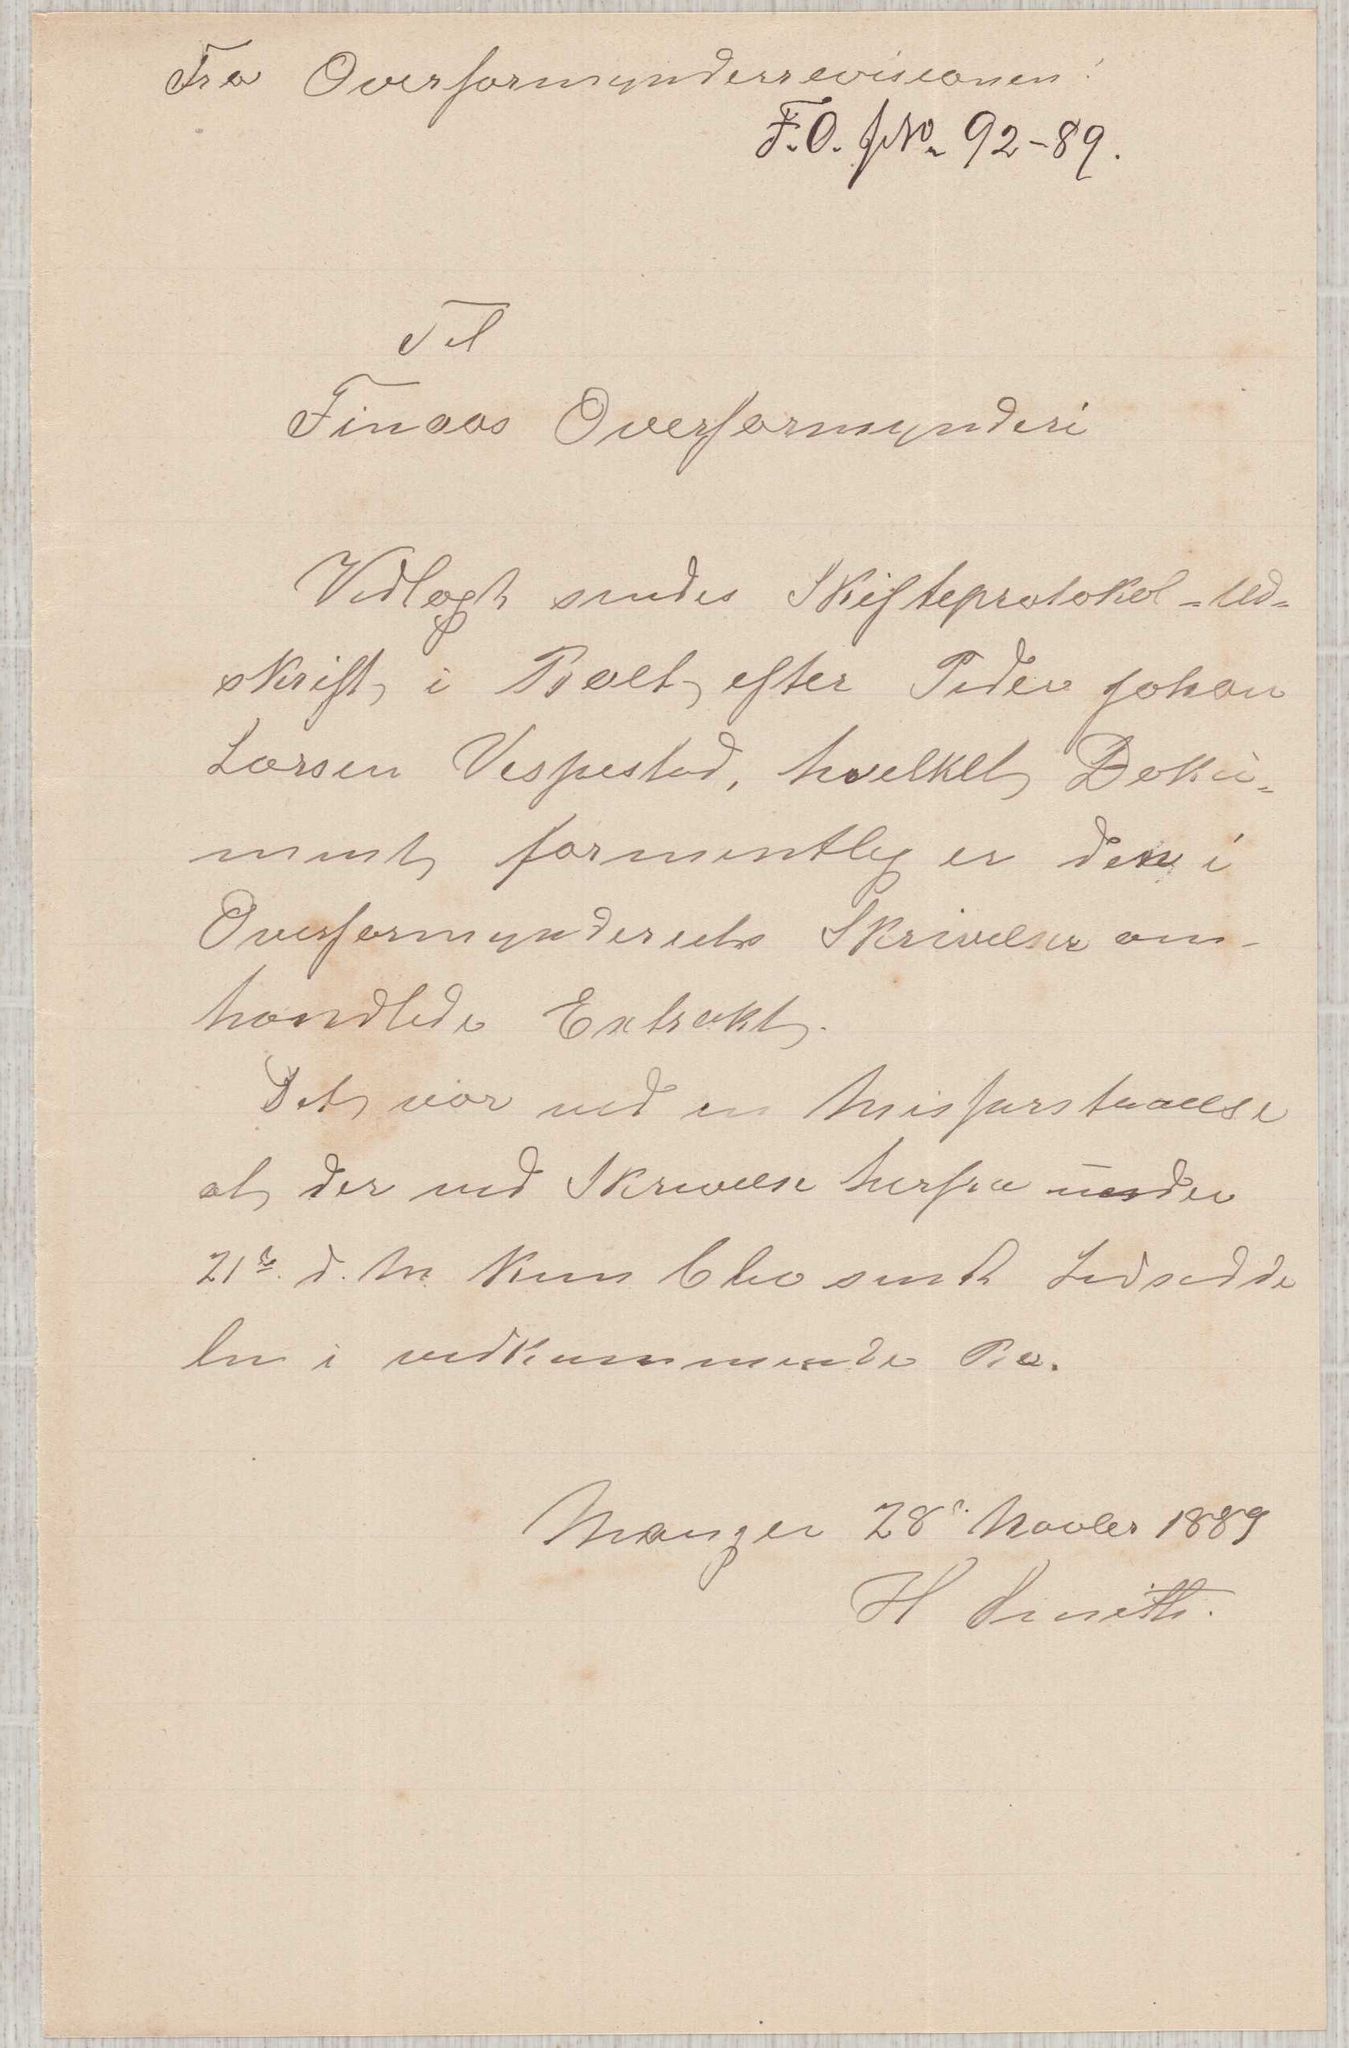 Fra Overformynderrevisionen:
F.O. JNo. 92-89.
Til
Finaas Overformynderi
Vedlagt sendes Skifteprotokol-Ud-
skrift i Boet efter Peder Johan
Larsen Vespestad, hvilket Doku-
ment formentlig er den i
Overformynderiets Skrivelse om-
handlede Extrakt.
Det var ved en Misforstaaelse
at der ved Skrivelse herfra under
21de d. M. kun blev sendt Lodsedde
len i vedkommende Bo.
Manger 28de Novbr 1889
H Smith.